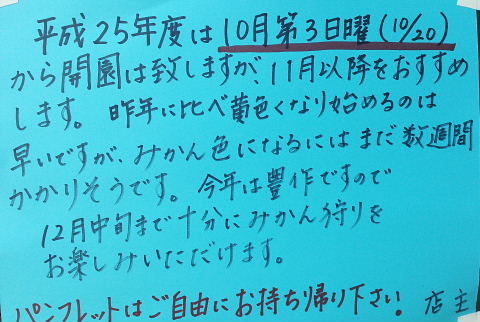 平成25年度は10月第3日曜(10/20)
から開園は致しますが、11月以降をおすすめ
します。昨年に比べ黄色くなり始めるのは
早いですが、みかん色になるにはまだ数週間
かかりそうです。今年は豊作ですので
12月中旬まで十分にみかん狩りを
お楽しみいただけます。
パンフレットはご自由にお持ち帰り下さい。店主